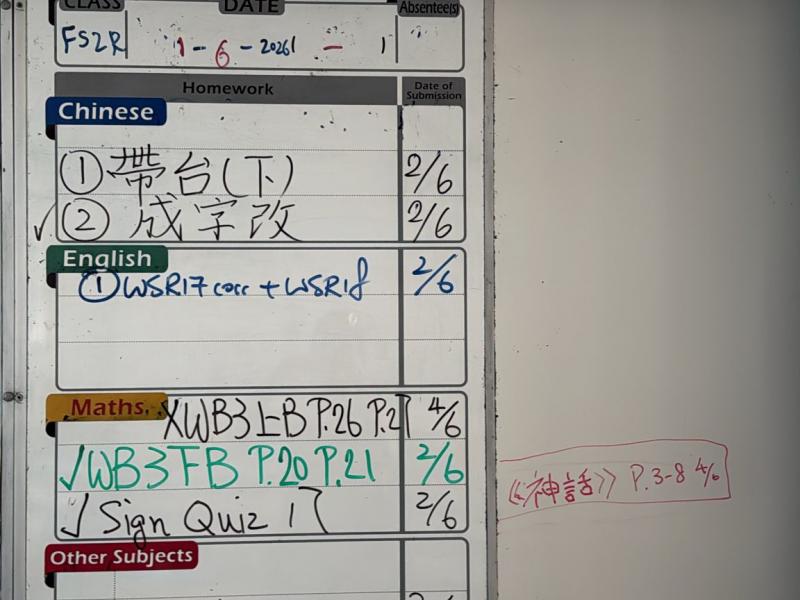 CLASS DATE Absentee(s)
FS2R 1-6-2026 - 1
Homework Date of Submission
Chinese
① 帶台(下) 2/6
✓② 成字改 2/6
English
① WSR17 corr + WSR18 2/6
Maths XWB3上B P.26 P.27 4/6
✓WB3下B P.20 P.21 2/6
✓Sign Quiz 17 2/6
《神話》 P.3-8 4/6
Other Subjects